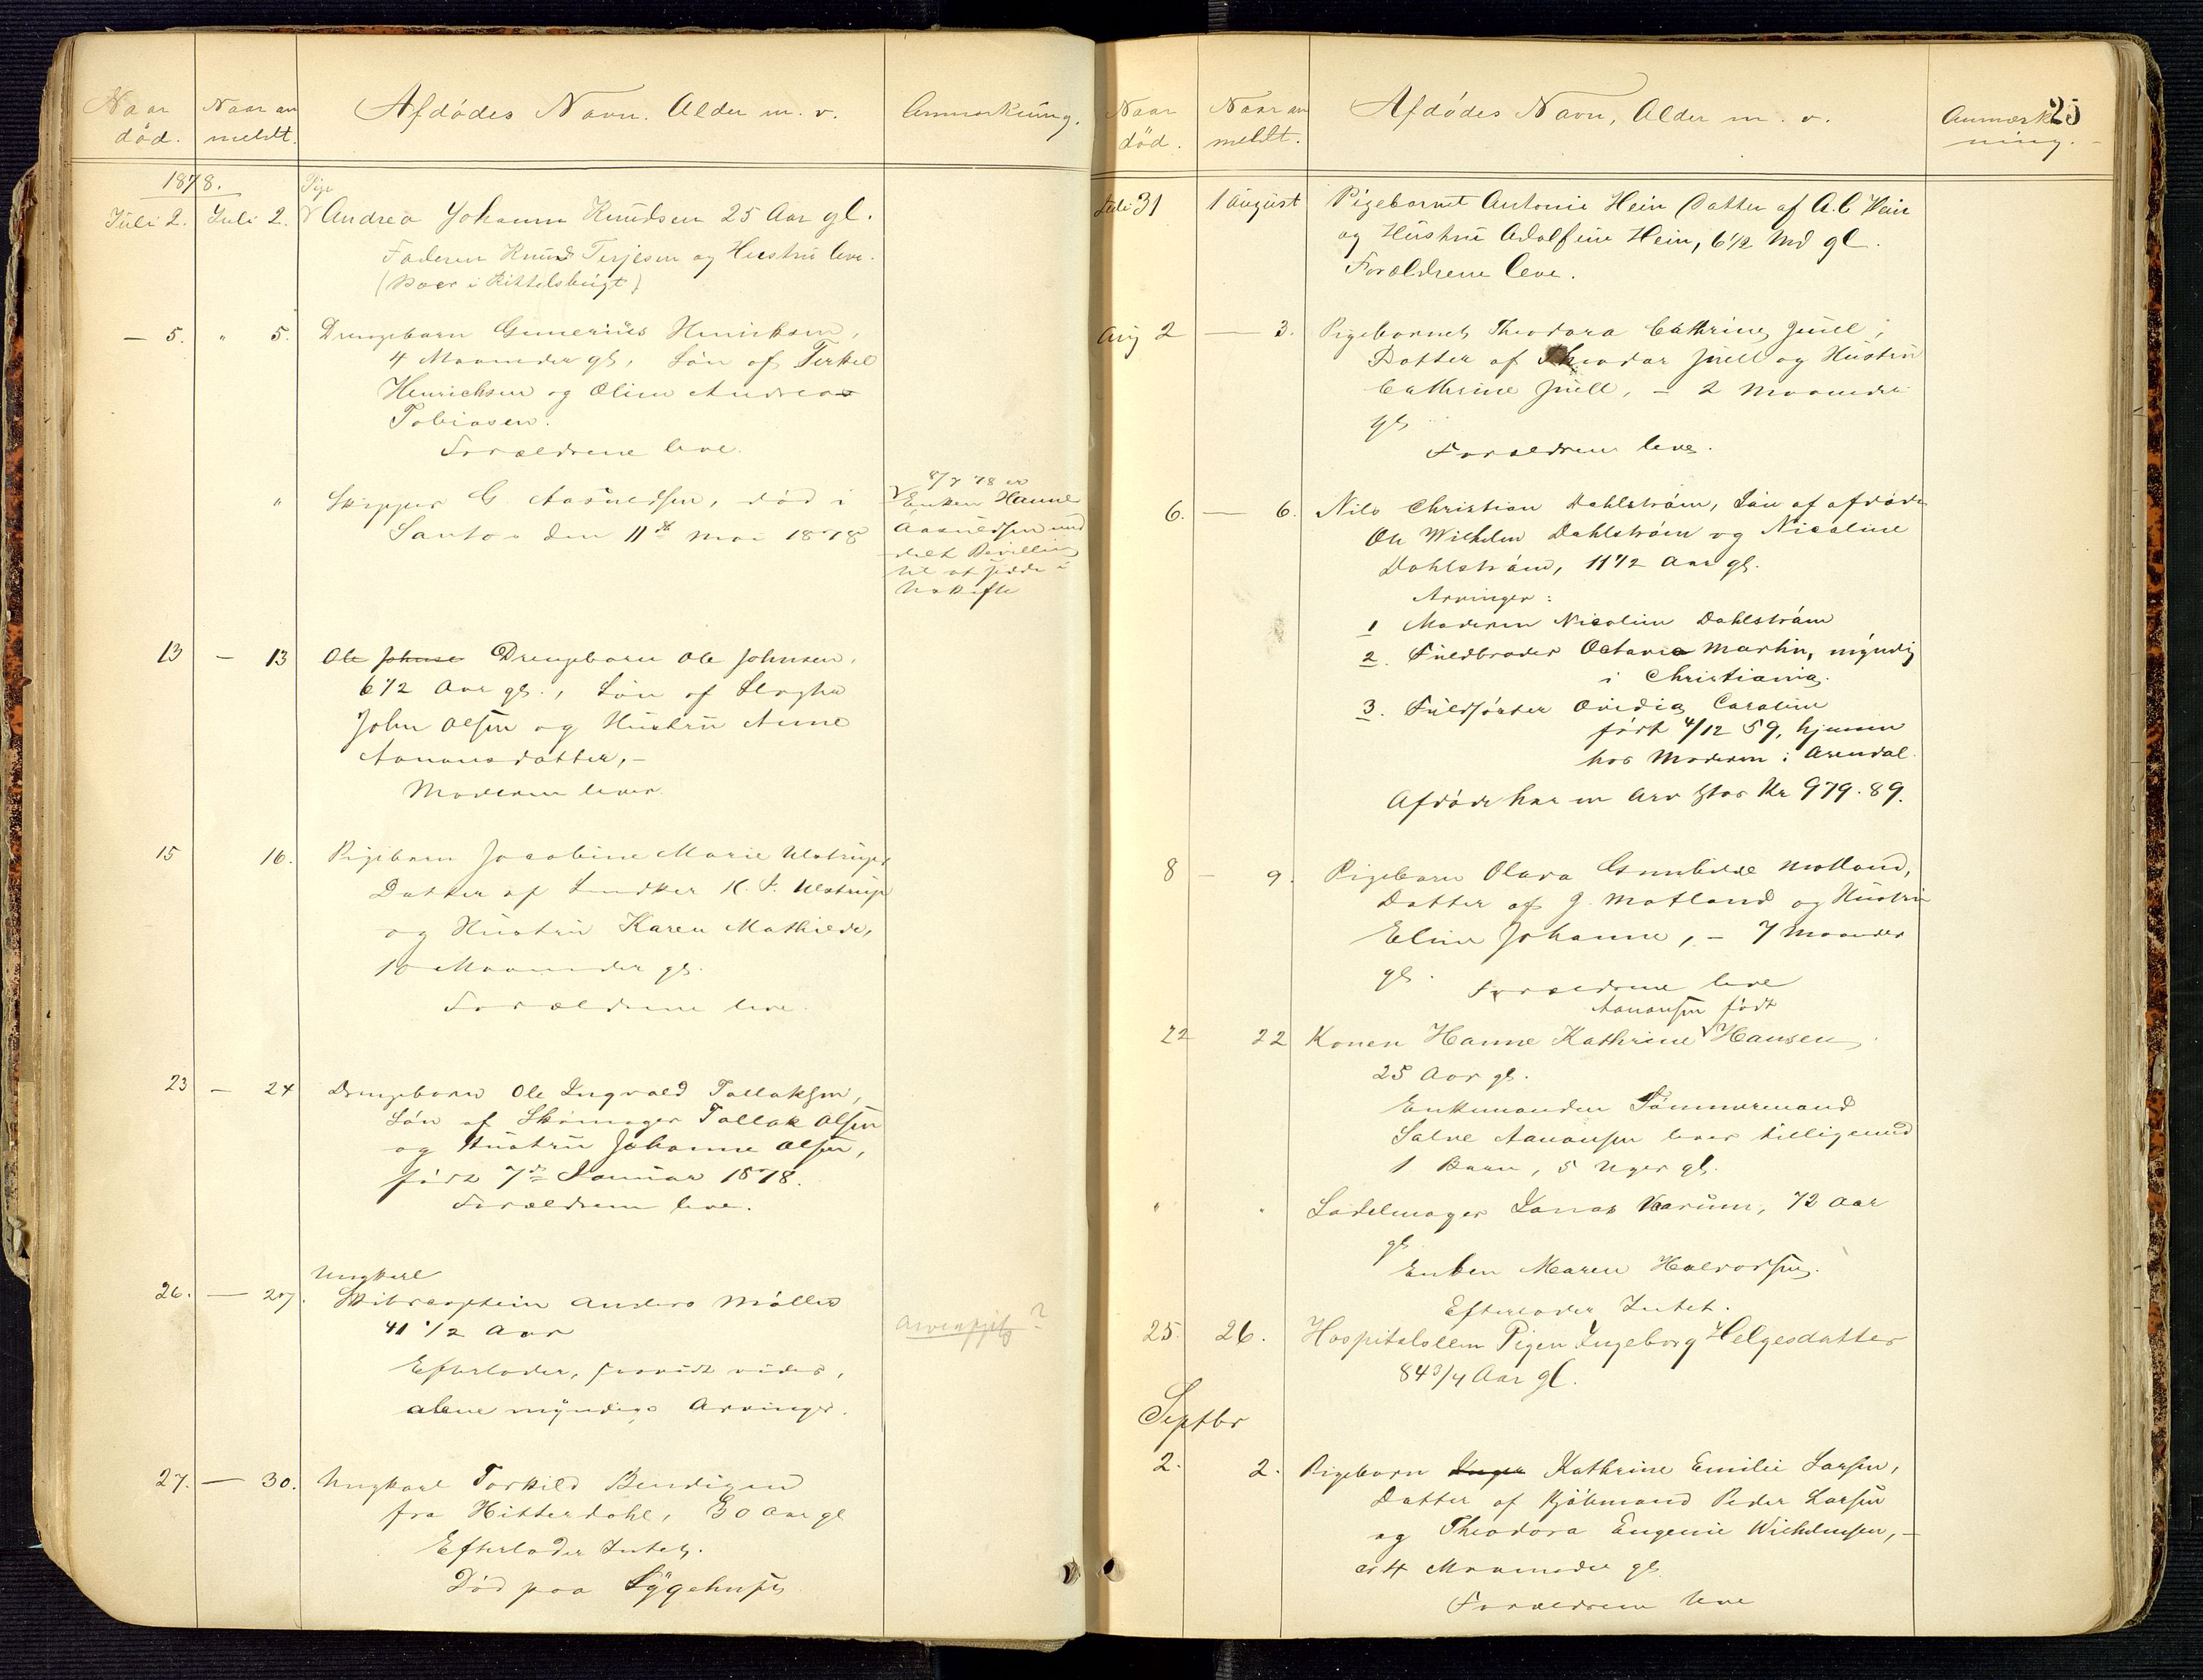 Naar død.
Naar an meldt.
Afdødes Navn. Alder m. v.
Anmærkning.
1878.
Pige
Juli 2. Juli 2. Andrea Johanne Knudsen 25 Aar gl.
Faderen Knud Terjesen og Hustru leve.
(Boer i Kittelsbugt)
— 5. " 5. Drengebarn Gunerius Henriksen,
4 Maaneder gl, Søn af Terkel
Henrichsen og Oline Andrea
Tobiasen.
Forældrene leve.
" Skipper G. Aasuldsen, død i
Santos den 11te Mai 1878
8/7 78 er
Enken Hanne
Aasuldsen med
delt Bevilling
til at sidde i
Uskifte
13 — 13 Ole Johnse Drengebarn Ole Johnsen,
6 1/2 Aar gl., Søn af
John Olsen og Hustru Anne
Aanonsdatter, –
Moderen lever.
15 16. Pigebarn Jacobine Marie Ulstrup
Datter af Snedker K. F. Ulstrup
og Hustru Karen Mathilde,
10 Maaneder gl.
Forældrene leve.
23 — 24 Drengebarn Ole Ingvald Tallaksen,
Søn af Skomager Tallak Olsen
og Hustru Johanne Olsen,
født 7de Januar 1878.
Forældrene leve.
Ungkarl
26. — 27. Skibscaptein Anders Møller
41 1/2 Aar
Efterlader, saavidt vides,
alene myndige Arvinger.
Arveafgift?
27. — 30. Ungkarl Torkild Bendixen
fra Hitterdahl, 30 Aar gl
Efterlader Intet.
Død paa Sygehuset
Naar død.
Naar an meldt.
Afdødes Navn, Alder m. v.
Anmærkning.
25
Juli 31 1 August Pigebarnet Antonie Hein Datter af A. C Hein
og Hustru Adolfine Hein, 6 1/2 Md gl.
Forældrene leve.
Aug 2 — 3. Pigebarnet Theodora Cathrine Juell,
Datter af Theodor Juell og Hustru
Cathrine Juell, – 2 Maaneder
gl
Forældrene leve.
6. — 6. Nils Christian Dahlstrøm, Søn af afdøde
Ole Wilhelm Dahlstrøm og Nicoline
Dahlstrøm, 11 1/2 Aar gl.
Arvinger:
1 Moderen Nicoline Dahlstrøm
2. Fuldbroder Octavie Martin, myndig
i Christiania.
3. Fuldsøster Ovidia Caroline
født 4/12 59, hjemme
hos Moderen i Arendal.
Afdøde har en Arv stor Kr 979.89.
8 — 9. Pigebarn Olava Gunhilde Motland,
Datter af J. Motland og Hustru
Eline Johanne, – 7 Maaneder
gl.
Forældrene leve
Aanonsen født
22 22 Konen Hanne Kathrine Hansen
25 Aar gl.
Enkemanden Tømmermand
Salve Aanonsen lever tilligemed
1 Barn, 5 Uger gl.
" " Sadelmager Jonas Varum, 72 Aar
gl
Enken Maren Halvorsen.
Efterlader Intet.
25. 26. Hospitalslem Pigen Ingeborg Helgesdatter
84 3/4 Aar gl.
Septbr
2. 2. Pigebarn Inger Kathrine Emilie Larsen,
Datter af Kjøbmand Peder Larsen
og Theodora Eugenie Wilhelmsen, –
4 Maaneder gl
Forældrene leve